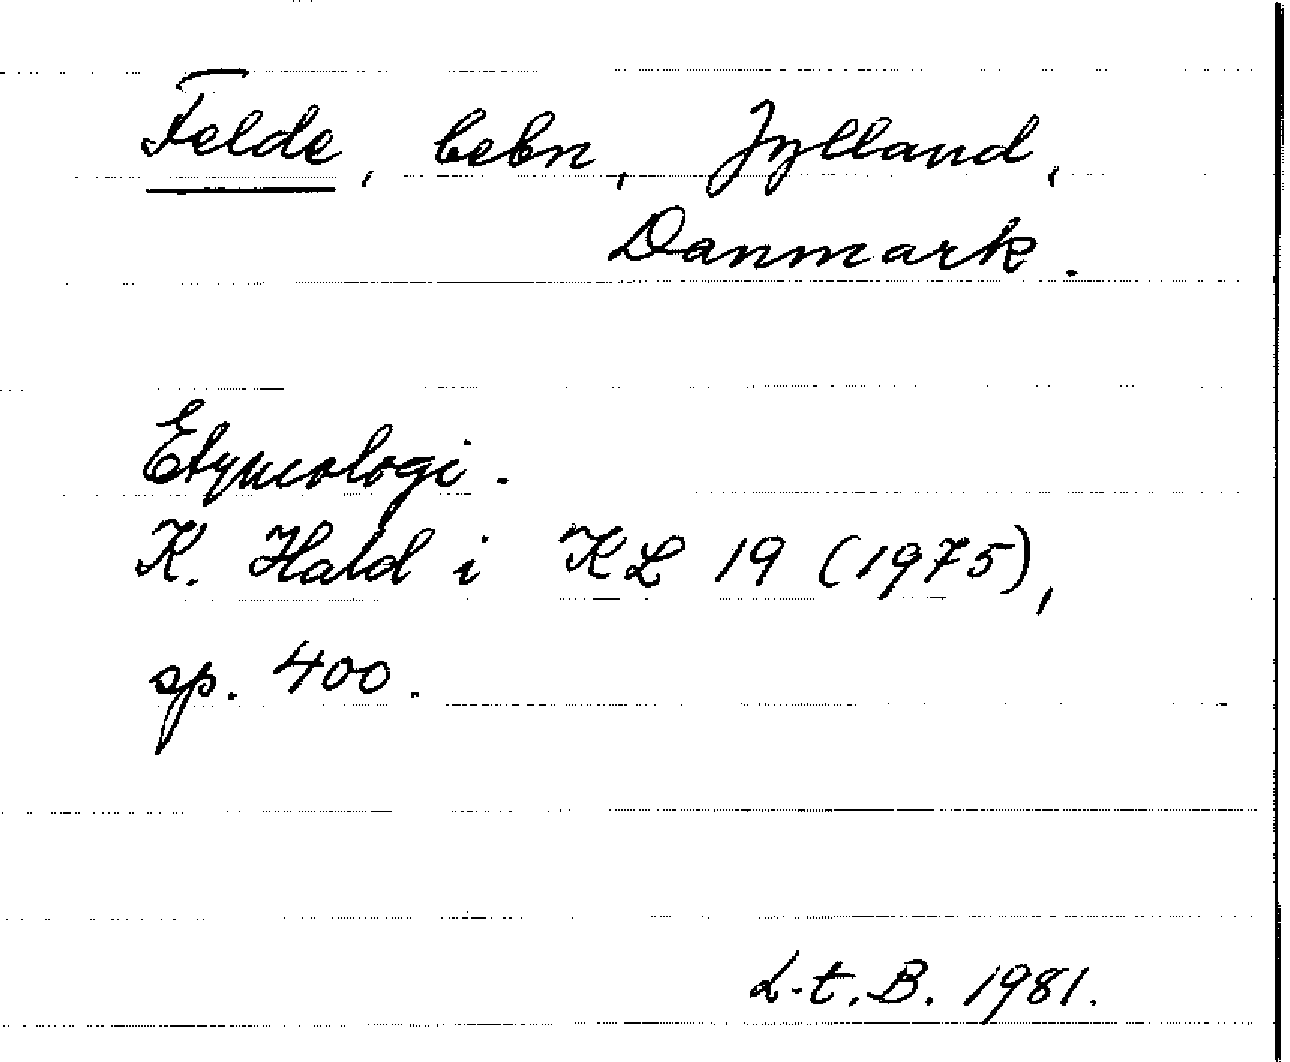 Felde, bebn, Jylland,
Danmark.
Etymologi.
K. Hald i KL 19 (1975),
sp. 400.
L.t.B. 1981.